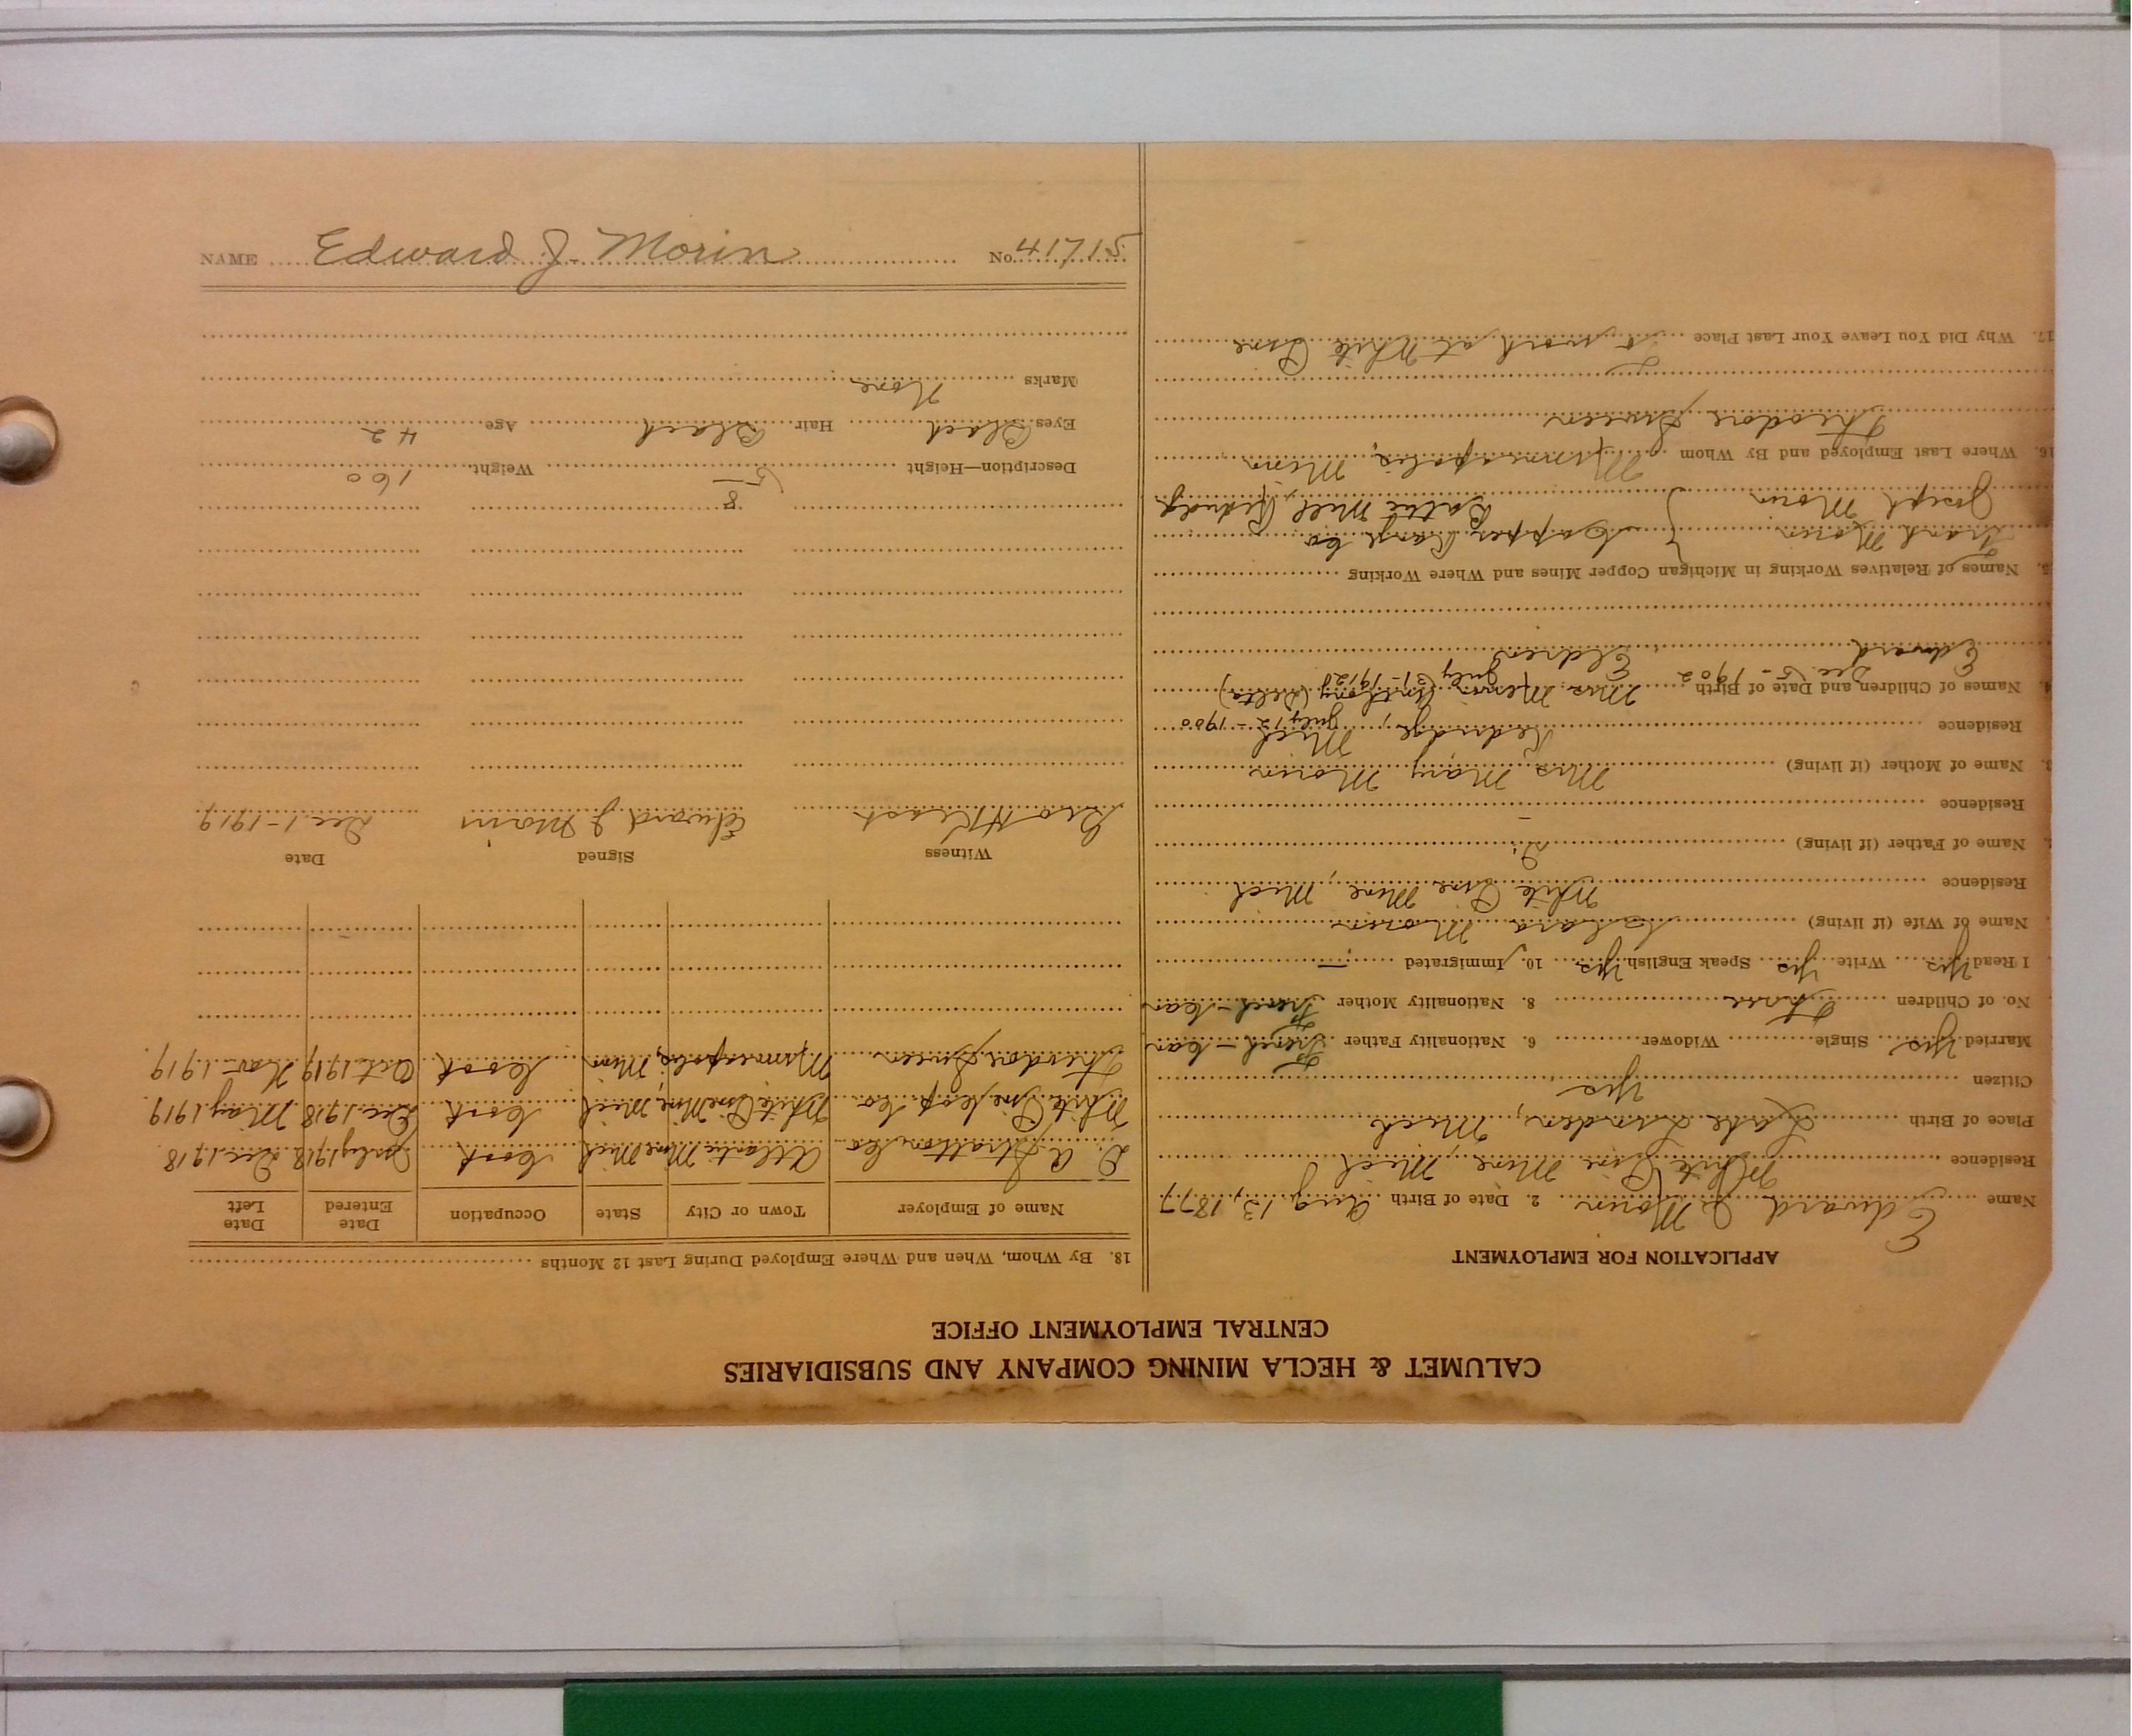 CALUMET & HECLA MINING COMPANY AND SUBSIDIARIES
CENTRAL EMPLOYMENT OFFICE
APPLICATION FOR EMPLOYMENT
Name Edward J. Morin 2. Date of Birth Aug. 13, 1877
Residence White Pine Mine, Mich
Place of Birth Lake Linden, Mich
Citizen Yes
Married Yes Single Widower 6. Nationality Father French-Can
No. of Children Three 8. Nationality Mother French-Can
I Read Yes Write Yes Speak English Yes 10. Immigrated —
Name of Wife (if living) Clara Morin
Residence White Pine Mine, Mich
Name of Father (if living)
Residence –
Name of Mother (if living) Mrs. Mary Morin
Residence Redridge, Mich July 12-1900
Names of Children and Date of Birth Mrs Mervin Anthony (Delia)
Dec. 5-1902 July 31-1912
Edward Eldren
Names of Relatives Working in Michigan Copper Mines and Where Working
Frank Morin } Copper Range Co
Joseph Morin Mill Redridge
16. Where Last Employed and By Whom Minneapolis, Minn
Theodore
17. Why Did You Leave Your Last Place To work at White Pine
18. By Whom, When and Where Employed During Last 12 Months
Name of Employer Town or City State Occupation Date Entered Date Left
D. A. Stratton Co Atlantic Mine Mich Cook July 1918 Dec. 1918
White Pine Cop Co. White Pine Mine Mich Cook Dec. 1918 May 1919
Theodore Minneapolis, Minn Cook Oct. 1919 Nov. 1919
Witness Signed Date
Geo Edward J Morin Dec 1-1919
8
Description—Height 5 Weight 160
Eyes Black Hair Black Age 42
Marks None
NAME Edward J. Morin No. 41715